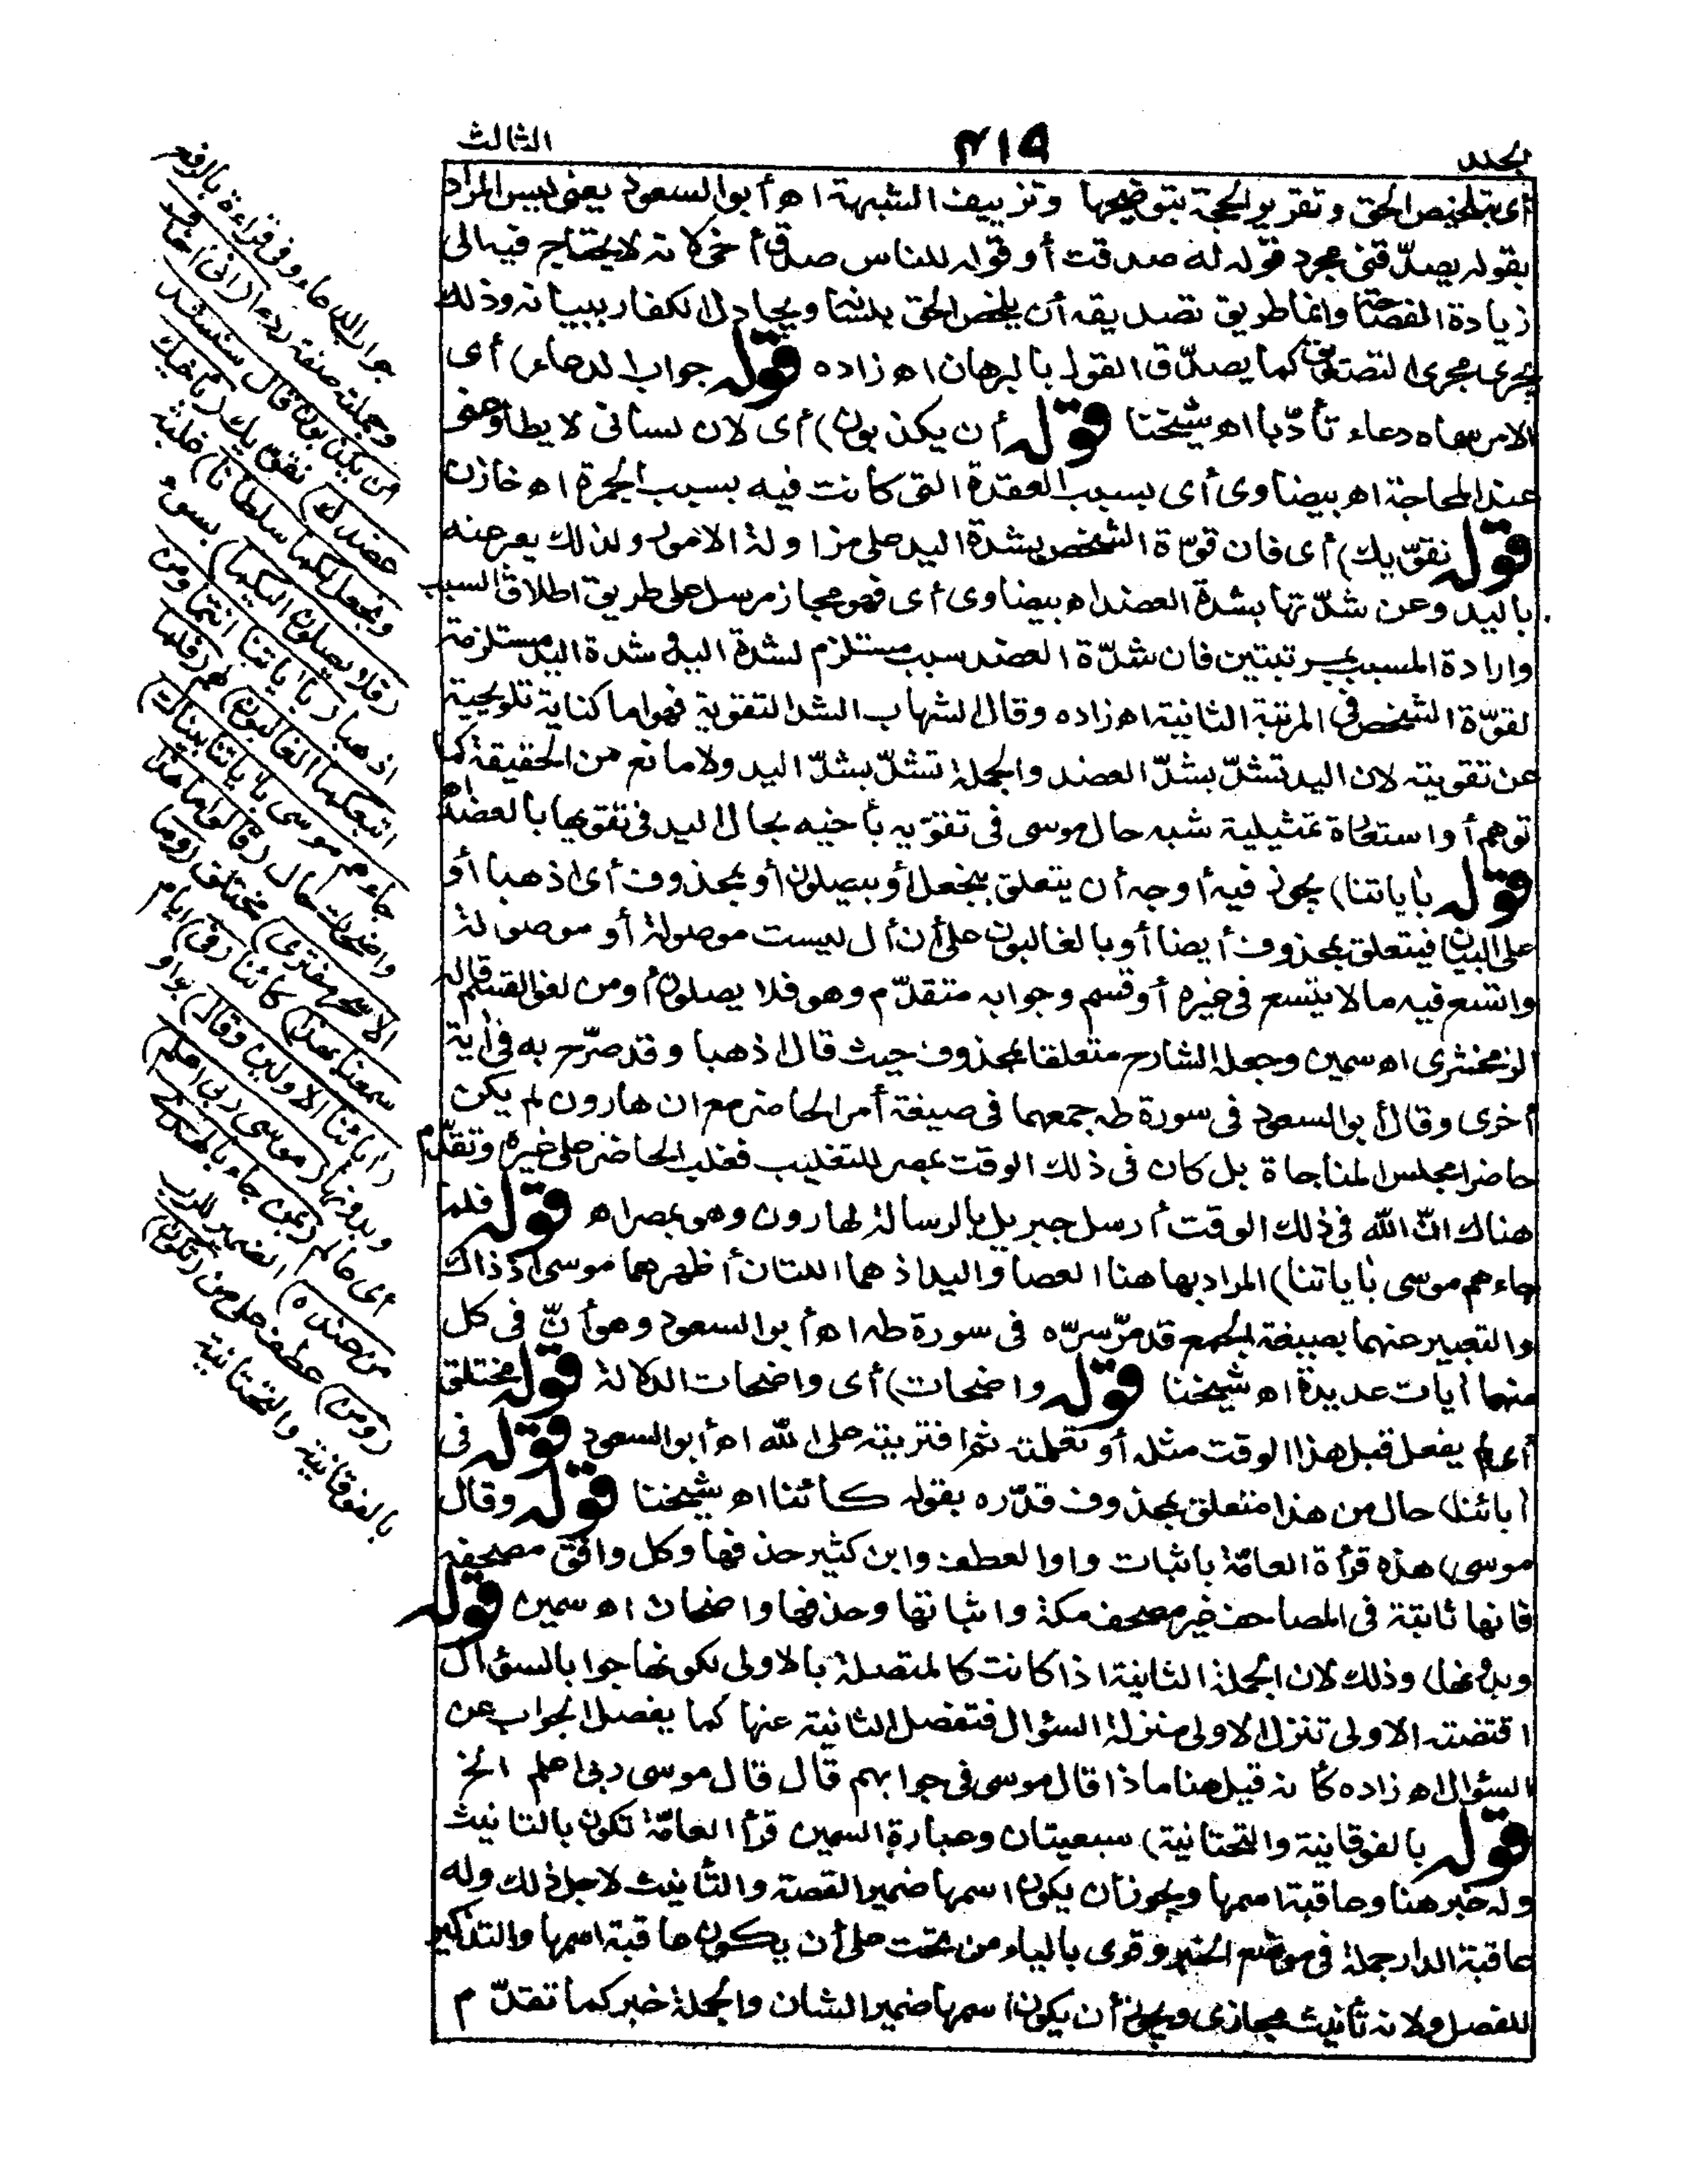 الجلد
٤١٩
الثالث
أى بتلخيص الحق وتقرير الحجة بتوضيحها وتزييف الشبهة اه أبو السعود يعنى ليس المراد
بقوله يصدّقنى مجرد قوله له صدقت أو قوله للناس صدق أخى لانه لا يحتاج فيه الى
زيادة الفصاحة وانما طريق تصديقه أن يلخص الحق بلسانه ويجادل الكفار ببيانه وذلك
يجرى مجرى التصديق كما يصدّق القول بالبرهان اه زاده قوله جواب الدعاء) أى
الامر سماه دعاء تأدّبا اه شيخنا قوله أن يكذبون) أى لان لسانى لا يطاوعنى
عند المحاجة اه بيضاوى أى بسبب العقدة التى كانت فيه بسبب الجمرة اه خازن
قوله نقوّيك) أى فان قوّة الشخص بشدة اليد على مزاولة الامور ولذلك يعبر عنه
باليد وعن شدّتها بشدة العضد اه بيضاوى أى فهو مجاز مرسل على طريق اطلاق السبب
وارادة المسبب بمرتبتين فان شدّة العضد سبب مستلزم لشدة اليد وشدة اليد مستلزمة
لقوّة الشخص فى المرتبة الثانية اه زاده وقال الشهاب الشد التقوية فهو اما كناية تلويحية
عن تقويته لان اليد تشتدّ بشدّ العضد والجملة تشتدّ بشدّ اليد ولا مانع من الحقيقة كما
توهم أو استعارة تمثيلية شبه حال موسى فى تقوّيه بأخيه بحال اليد فى تقويها بالعضد اه
قوله بآياتنا) يجوز فيه أوجه أن يتعلق بنجعل أو بيصلون أو بمحذوف أى اذهبا أو
على البيان فيتعلق بمحذوف أيضا أو بالغالبون على أن أل ليست موصولة أو موصولة
واتسع فيه ما لا يتسع فى غيره أو قسم وجوابه متقدّم وهو فلا يصلون أو من لغو القسم قاله
الزمخشرى اه سمين وجعله الشارح متعلقا بمحذوف حيث قال اذهبا وقد صرّح به فى آية
أخرى وقال أبو السعود فى سورة طه جمعهما فى صيغة أمر الحاضر مع ان هارون لم يكن
حاضرا مجلس المناجاة بل كان فى ذلك الوقت بمصر للتغليب فغلب الحاضر على غيره وتقدّم
هناك انّ الله فى ذلك الوقت أرسل جبريل بالرسالة لهارون وهو بمصر اه قوله فلما
جاءهم موسى بآياتنا) المراد بها هنا العصا واليد اذ هما اللتان أظهرهما موسى اذ ذاك
والتعبير عنهما بصيغة الجمع قد مرّ سرّه فى سورة طه اه أبو السعود وهو أنّ فى كل
منهما آيات عديدة اه شيخنا قوله واضحات) أى واضحات الدلالة قوله مختلق
أى لم يفعل قبل هذا الوقت مثله أو تعلمته ثم افتريته على الله اه أبو السعود قوله فى
آبائنا) حال من هذا متعلق بمحذوف قدّره بقوله كائنا اه شيخنا قوله وقال
موسى) هذه قرأة العامّة باثبات واو العطف وابن كثير حذفها وكل وافق مصحفه
فانها ثابتة فى المصاحف غير مصحف مكة واثباتها وحذفها واضحان اه سمين قوله
وبدونها) وذلك لان الجملة الثانية اذا كانت كالمتصلة بالاولى لكونها جوابا لسؤال
اقتضته الاولى تنزل الاولى منزلة السؤال فتفصل الثانية عنها كما يفصل الجواب عن
السؤال اه زاده كأنه قيل هنا ماذا قال موسى فى جوابهم قال قال موسى ربى اعلم الخ
قوله بالفوقانية والتحتانية) سبعيتان وعبارة السمين قرأ العامّة تكون بالتانيث
وله خبر هنا وعاقبة اسمها ويجوز ان يكون اسمها ضمير القصة والتأنيث لاجل ذلك وله
عاقبة الدار جملة فى موضع الخبر وقرى بالياء من تحت على أن يكون عاقبة اسمها والتذكير
للفصل ولانه تأنيث مجازى ويجوز أن يكون اسمها ضمير الشان والجملة خبر كما تقدّم
جواب الدعاء وفى قراءة بالرفع
وجملته صفة ردءا (انى اخاف
ان يكذبون قال سنشد
عضدك) نقوّيك (بأخيك
ونجعل لكما سلطانا) غلبة
(فلا يصلون اليكما) بسوء
اذهبا (بآياتنا انتما ومن
اتبعكما الغالبون) لهم (فلما
جاءهم موسى بآياتنا بينات)
واضحات حال (قالوا ما هذا
الا سحر مفترى) مختلق (وما
سمعنا بهذا) كائنا (فى) ايام
(آبائنا الاولين وقال) بواو
وبدونها (موسى ربى اعلم)
أى عالم (بمن جاء بالهدى
من عنده) الضمير للرب
(ومن) عطف على من (تكون)
بالفوقانية والتحتانية